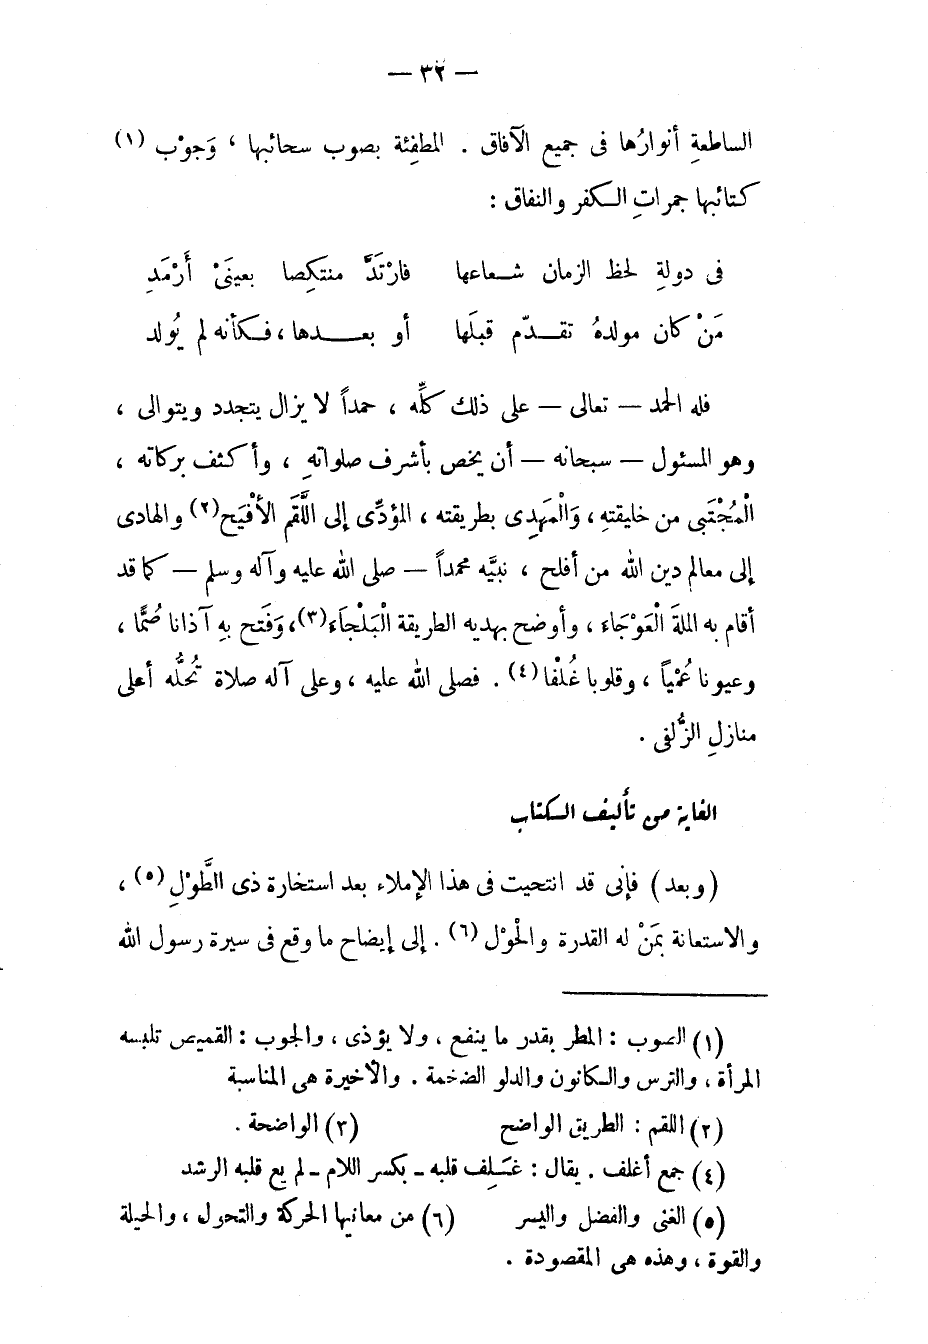 — ٣٢ —
الساطعةِ أنوارُها فى جميع الآفاق . المطفِئة بصوب سحائبها ، وَجوْب (١)
كتائبها جمراتِ الكفر والنفاق :
فى دولةِ لحظ الزمان شعاعها فارْتَدَّ منتكِصا بعينَىْ أَرْمَدِ
مَنْ كان مولدهُ تقدّم قبلَها أو بعدها ، فكأنه لم يُولد
فله الحمد — تعالى — على ذلك كلِّه ، حمداً لا يزال يتجدد ويتوالى ،
وهو المسئول — سبحانه — أن يخص بأشرف صلواتهِ ، وأكثف بركاته ،
الْمُجْتَبى من خليقتهِ ، وَالْمَهدِى بطريقته ، المؤدِّى إلى اللَّقَم الأفْيَح(٢) والهادى
إلى معالم دين الله من أفلح ، نبيَّه محمداً — صلى الله عليه وآله وسلم — كما قد
أقام به الملةَ الْعَوْجَاء ، وأوضح بهديه الطريقة الْبَلْجَاءَ(٣)، وَفَتح بهِ آذانا صُمًّا ،
وعيونا عُمْياً ، وقلوبا غُلْفا(٤) . فصلى الله عليه ، وعلى آله صلاة تُحلُّه أعلى
منازلِ الزُّلفى .
الغاية من تأليف الكتاب
(وبعد) فإنى قد انتحيت فى هذا الإملاء بعد استخارة ذى االطَّوْلِ (٥) ،
والاستعانة بمَنْ له القدرة والحْوْل (٦) . إلى إيضاح ما وقع فى سيرة رسول الله
(١) الصوب : المطر بقدر ما ينفع ، ولا يؤذى ، والجوب : القميص تلبسه
المرأة ، والترس والكانون والدلو الضخمة . والأخيرة هى المناسبة
(٢) اللقم : الطريق الواضح (٣) الواضحة .
(٤) جمع أغلف . يقال : غَلِف قلبه ـ بكسر اللام ـ لم يع قلبه الرشد
(٥) الغنى والفضل واليسر (٦) من معانيها الحركة والتحول ، والحيلة
والقوة ، وهذه هى المقصودة .